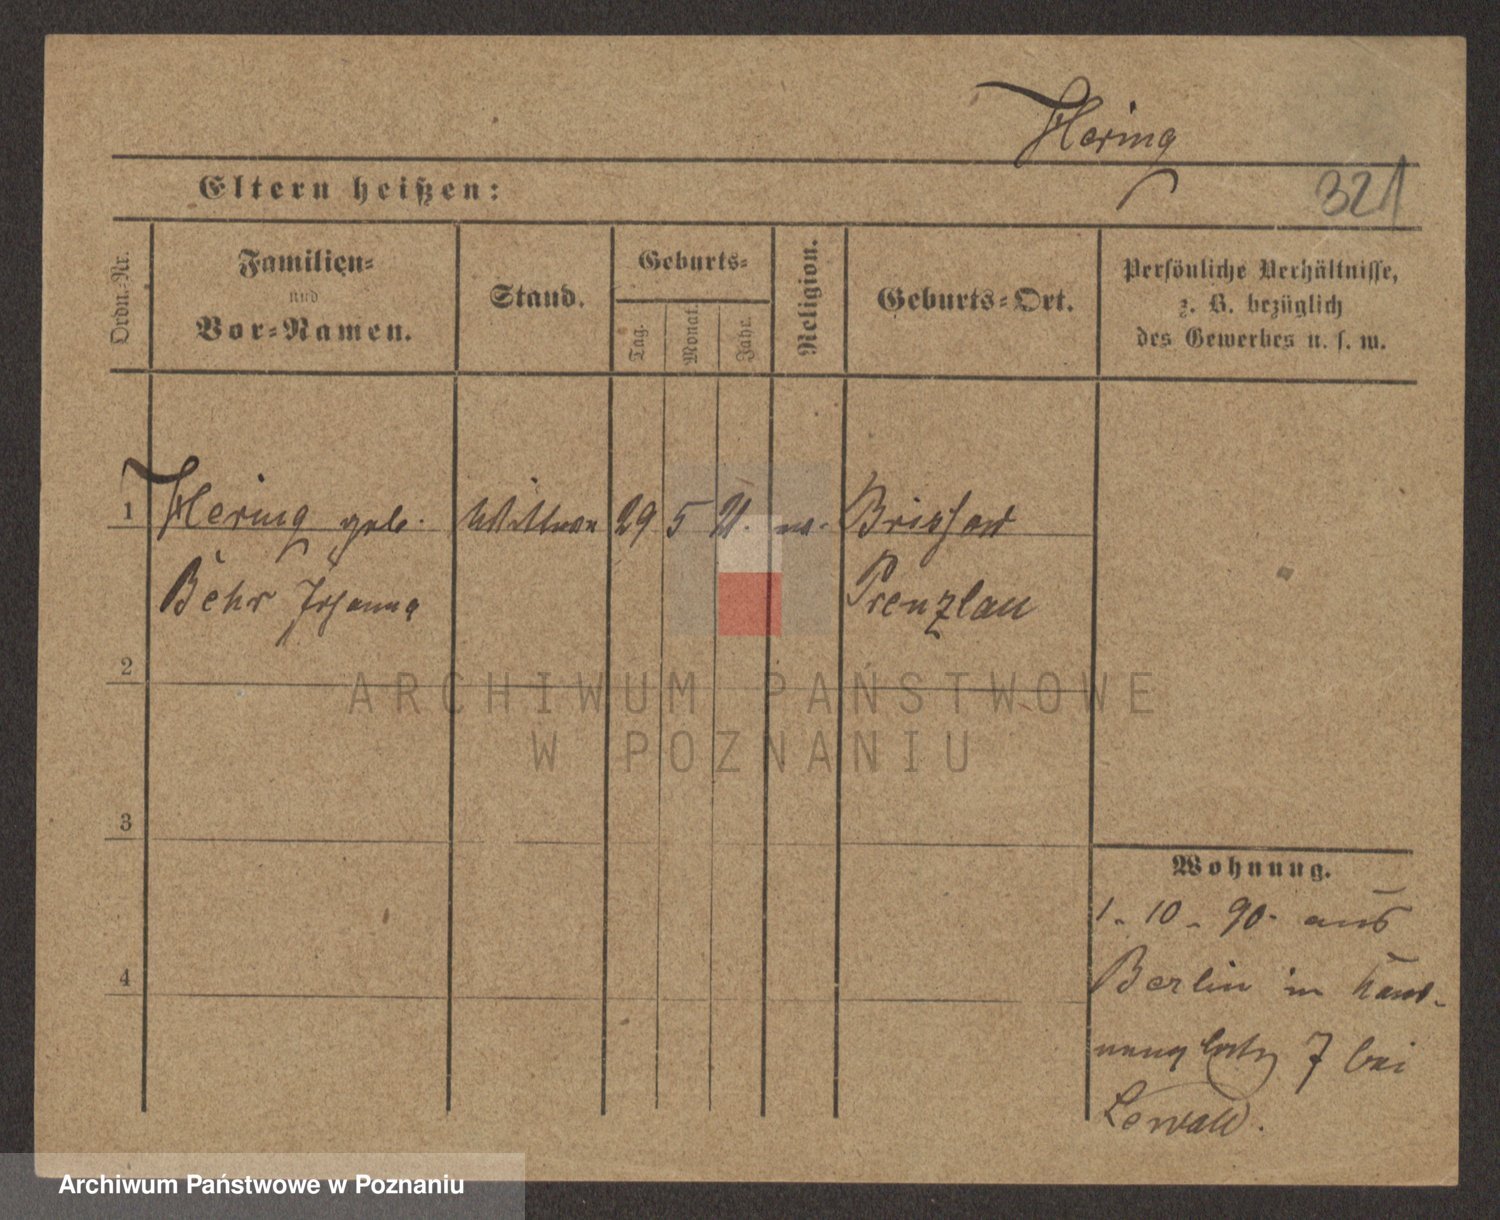 Hering
321
Eltern heißen:
Ordn.-Nr.
Familien-
und
Vor-Namen.
Stand.
Geburts-
Tag.
Monat.
Jahr.
Religion.
Geburts-Ort.
Persönliche Verhältnisse,
z. B. bezüglich
des Gewerbes u. s. w.
1 Hering geb. Wittwe 29 5 21. ev.
Behr Johanna Prenzlau
2
3
4
Wohnung.
1. 10. 90. aus
Berlin in
7 bei
Lewald.
ARCHIWUM PAŃSTWOWE
W POZNANIU
Archiwum Państwowe w Poznaniu